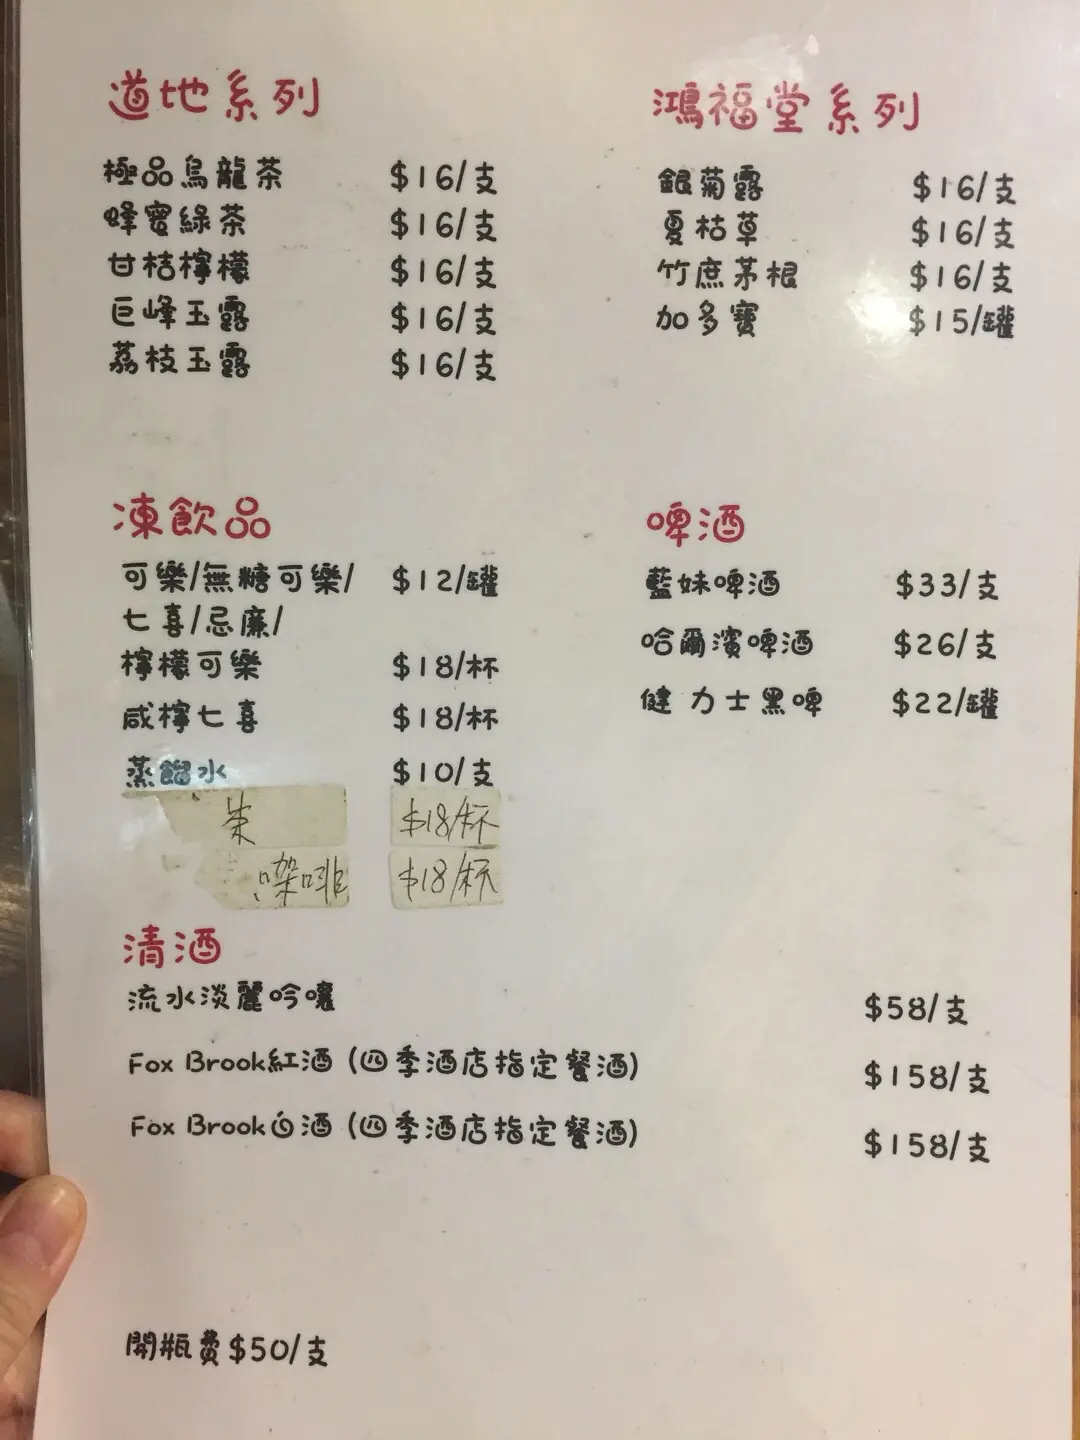 道地系列
極品烏龍茶 $16/支
蜂蜜綠茶 $16/支
甘桔檸檬 $16/支
巨峰玉露 $16/支
荔枝玉露 $16/支
鴻福堂系列
銀菊露 $16/支
夏枯草 $16/支
竹庶茅根 $16/支
加多寶 $15/罐
凍飲品
可樂/無糖可樂/ $12/罐
七喜/忌廉/
檸檬可樂 $18/杯
咸檸七喜 $18/杯
蒸餾水 $10/支
$18/杯
㗎啡 $18/杯
啤酒
藍妹啤酒 $33/支
哈爾濱啤酒 $26/支
健 力士黑啤 $22/罐
清酒
流水淡麗吟釀 $58/支
Fox Brook紅酒 (四季酒店指定餐酒) $158/支
Fox Brook白酒 (四季酒店指定餐酒) $158/支
開瓶費$50/支